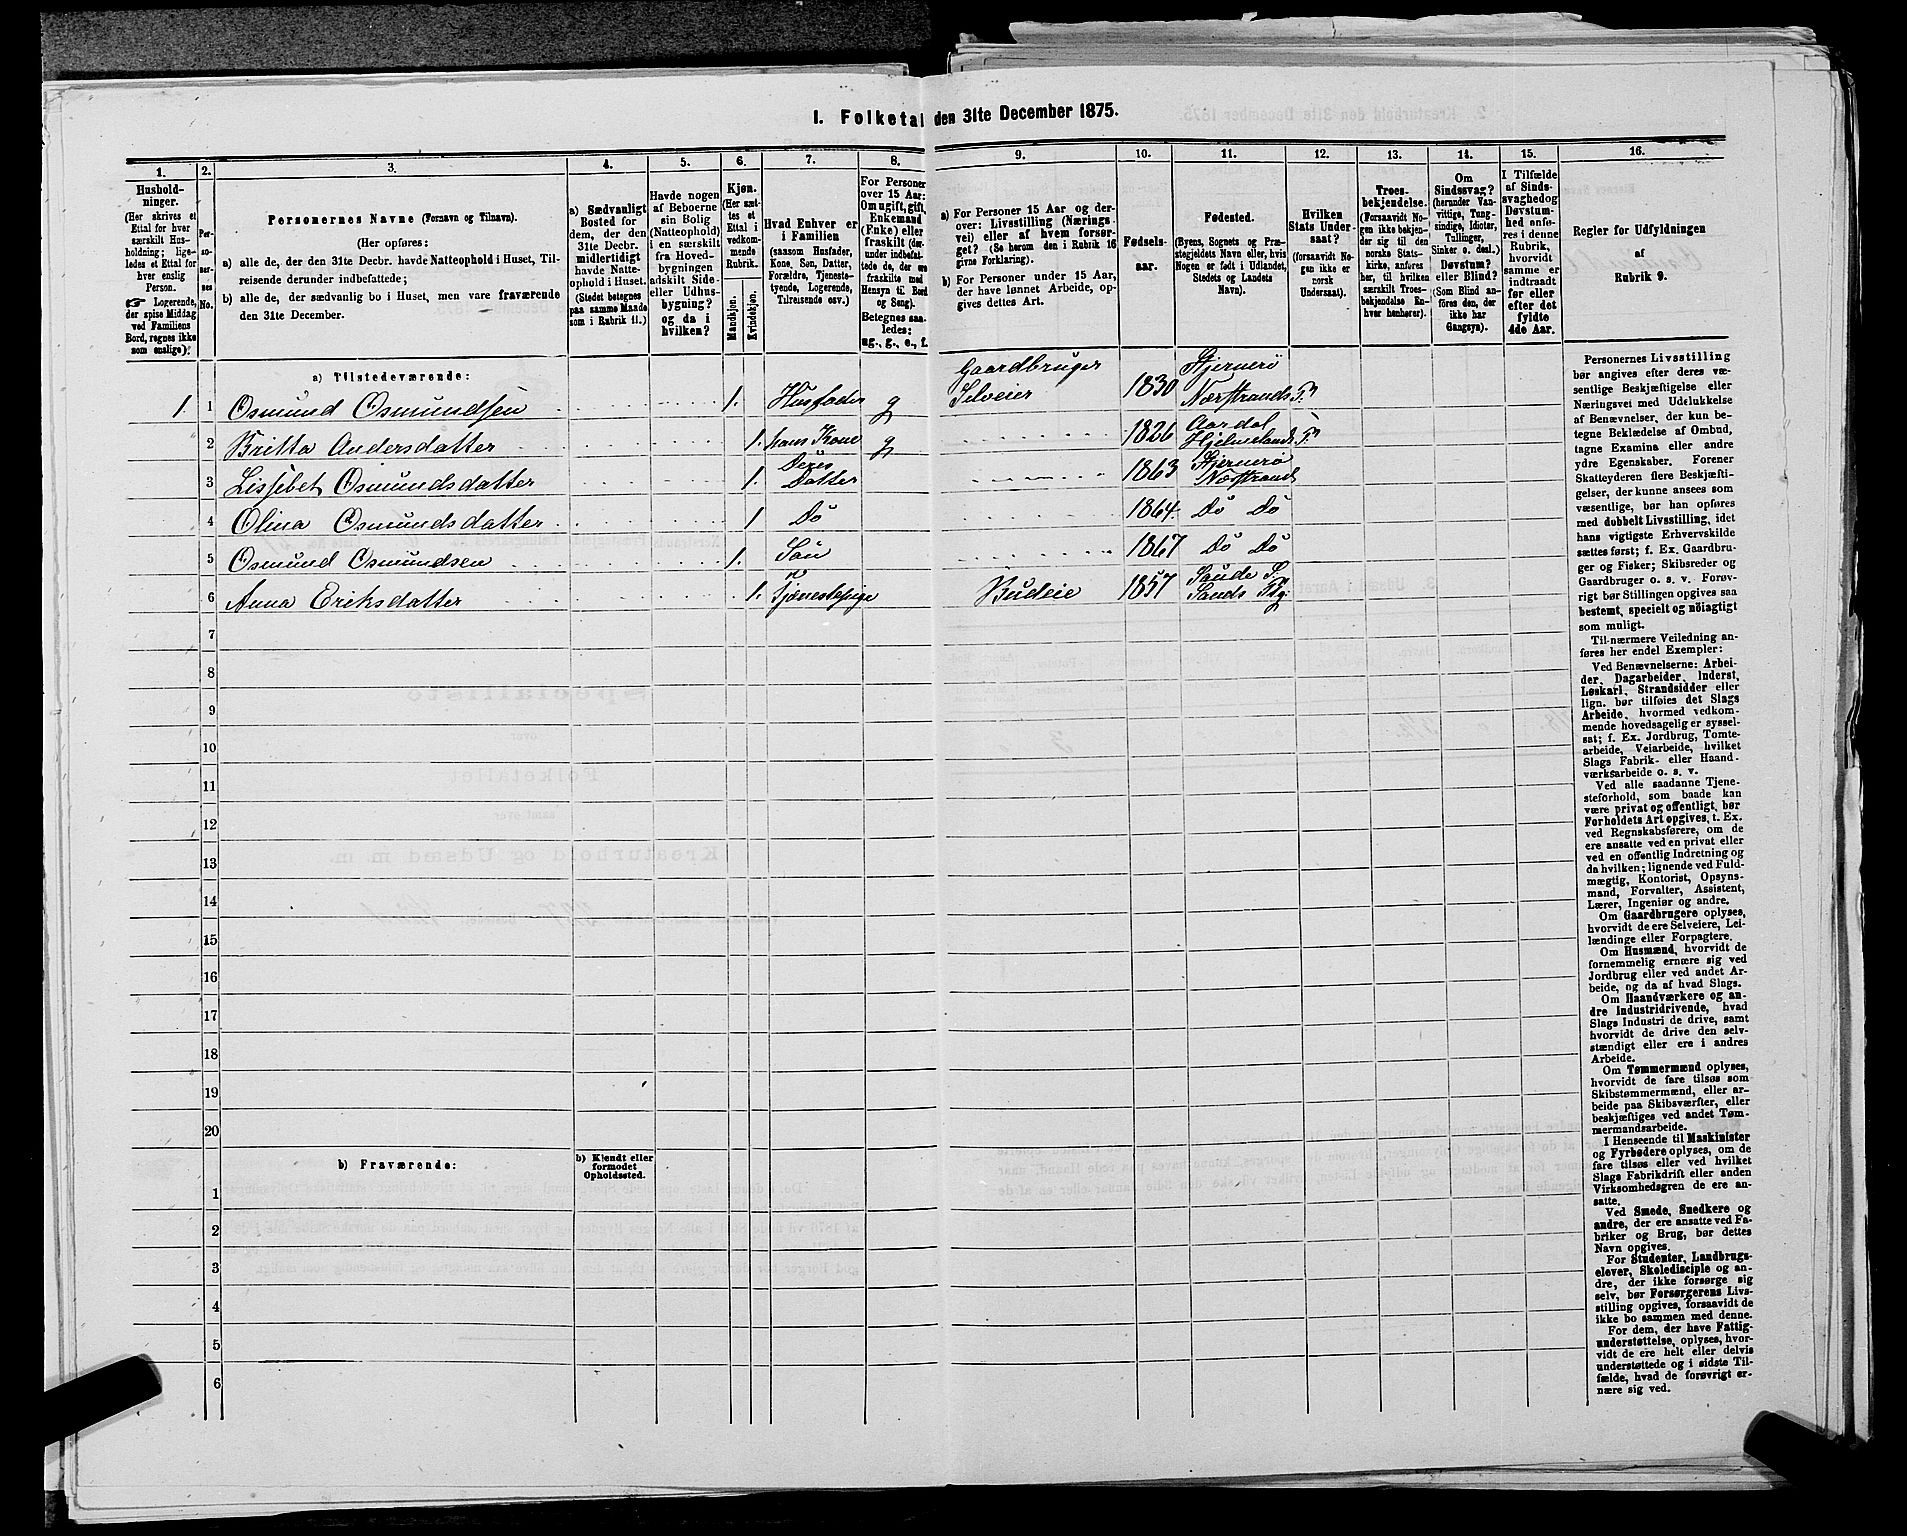 I. Folketal den 31te December 1875.
1.
Hushold-
ninger.
(Her skrives et
Ettal for hver
særskilt Hus-
holdning; lige-
ledes et Ettal for
hver enslig
Person.
☞ Logerende,
der spise Middag
ved Familiens
Bord, regnes ikke
som enslige).
2.
Per-
so-
ner-
nes
No.
3.
Personernes Navne (Fornavn og Tilnavn).
(Her opføres:
a) alle de, der den 31te Decbr. havde Natteophold i Huset, Til-
reisende derunder indbefattede;
b) alle de, der sædvanlig bo i Huset, men vare fraværende
den 31te December.
4.
a) Sædvanligt
Bosted for
dem, der den
31te Decbr.
midlertidigt
havde Natte-
ophold i Huset.
(Stedet betegnes
paa samme Maade
som i Rubrik 11.)
5.
Havde nogen
af Beboerne
sin Bolig
(Natteophold)
i en særskilt
fra Hoved-
bygningen
adskilt Side-
eller Udhus-
bygning?
og da i
hvilken?
6.
Kjøn.
(Her sæt-
tes et
Ettal i
vedkom-
mende
Rubrik.
Mandkjøn.
Kvindekjøn.
7.
Hvad Enhver er
i Familien
(saasom Husfader,
Kone, Søn, Datter,
Forældre, Tjeneste-
tyende, Logerende,
Tilreisende osv.)
8.
For Personer
over 15 Aar:
Om ugift, gift,
Enkemand
(Enke) eller
fraskilt (der-
under indbefat-
tede de, der ere
fraskilte med
Hensyn til Bord
og Seng).
Betegnes saa-
ledes:
ug., g., e., f.
9.
a) For Personer 15 Aar og der-
over: Livsstilling (Nærings-
vei) eller af hvem forsør-
get? (Se herom den i Rubrik 16
givne Forklaring).
b) For Personer under 15 Aar,
der have lønnet Arbeide, op-
gives dettes Art.
10.
Fødsels-
aar.
11.
Fødested.
(Byens, Sognets og Præ-
stegjeldets Navn eller, hvis
Nogen er født i Udlandet,
Stedets og Landets
Navn).
12.
Hvilken
Stats Under-
saat?
(forsaavidt No-
gen ikke er
norsk
Undersaat).
13.
Troes-
bekjendelse.
(Forsaavidt No-
gen ikke bekjen-
der sig til den
norske Stats-
kirke, anføres
her, til hvilken
særskilt Troes-
bekjendelse En-
hver henhører).
14.
Om
Sindssvag?
(herunder Van-
vittige, Tung-
sindige, Idioter,
Tullinger,
Sinker o. desl.)
Døvstum?
eller Blind?
(Som Blind an-
føres den, der
ikke har
Gangsyn).
15.
I Tilfælde
af Sinds-
svaghed og
Døvstum-
hed anfø-
res i denne
Rubrik,
hvorvidt
samme er
indtraadt
før eller
efter det
fyldte
4de Aar.
16.
Regler for Udfyldningen
af
Rubrik 9.
a) Tilstedeværende:
1. 1 Osmund Osmundsen 1. Husfader g Gaardbruger Selveier 1830 Stjernerø Nærstrands
2 Britta Andersdatter 1. hans Kone g 1826 Aardal Hjelmelands
3 Lissebet Osmundsdatter 1. Deres Datter 1863 Stjernerø Næsstrand
4 Olina Osmundsdatter 1 Do 1864. Do Do
5 Osmund Osmundsen 1. Søn 1867 Do Do
6 Anna Eriksdatter 1. Tjenestepige Budeie 1857 Saude S. Sands Pg.
7
8
9
10
11
12
13
14
15
16
17
18
19
20
b) Fraværende:
b) Kjendt eller
formodet
Opholdssted.
1
2
3
4
5
6
Personernes Livsstilling
bør angives efter deres væ-
sentlige Beskjæftigelse eller
Næringsvei med Udelukkelse
af Benævnelser, der kun be-
tegne Beklædelse af Ombud,
tagne Examina eller andre
ydre Egenskaber. Forener
Skatteyderen flere Beskjæfti-
gelser, der kunne ansees som
væsentlige, bør han opføres
med dobbelt Livsstilling, idet
hans vigtigste Erhvervskilde
sættes først; f. Ex. Gaardbru-
ger og Fisker; Skibsreder og
Gaardbruger o. s. v. Forøv-
rigt bør Stillingen opgives saa
bestemt, specielt og nöiagtigt
som muligt.
Til nærmere Veiledning an-
føres her endel Exempler:
Ved Benævnelserne: Arbei-
der, Dagarbeider, Inderst,
Løskarl, Strandsidder eller
lign. bør tilføies det Slags
Arbeide, hvormed vedkom-
mende hovedsagelig er syssel-
sat; f. Ex. Jordbrug, Tomte-
arbeide, Veiarbeide, hvilket
Slags Fabrik- eller Haand-
værksarbeide o. s. v.
Ved alle saadanne Tjene-
steforhold, som baade kan
være privat og offentligt, bør
Forholdets Art opgives, t. Ex.
ved Regnskabsførere, om de
ere ansatte ved en privat eller
ved en offentlig Indretning og
da hvilken; lignende ved Fuld-
mægtig, Kontorist, Opsyns-
mand, Forvalter, Assistent,
Lærer, Ingeniør og andre.
Om Gaardbrugere oplyses,
hvorvidt de ere Selveiere, Lei-
lændinge eller Forpagtere.
Om Husmænd, hvorvidt de
fornemmelig ernære sig ved
Jordbrug eller ved andet Ar-
beide, og da af hvad Slags.
Om Haandværkere og an-
dre Industridrivende, hvad
Slags Industri de drive, samt
hvorvidt de drive den selv-
stændigt eller ere i andres
Arbeide.
Om Tømmermænd oplyses,
hvorvidt de fare tilsøs som
Skibstømmermænd, eller ar-
beide paa Skibsværfter, eller
beskjæftiges ved andet Tøm-
mermandsarbeide.
I Henseende til Maskinister
og Fyrbødere oplyses, om de
fare tilsøs eller ved hvilket
Slags Fabrikdrift eller anden
Virksomhedsgren de ere an-
satte.
Ved Smede, Snedkere og
andre, der ere ansatte ved Fa-
briker og Brug, bør dettes
Navn opgives.
For Studenter, Landbrugs-
elever, Skoledisciple og an-
dre, der ikke forsørge sig
selv, bør Forsørgerens Livs-
stilling opgives, forsaavidt de
ikke bo sammen med denne.
For dem, der have Fattig-
understøttelse, oplyses, hvor-
vidt de ere helt eller delvis
understøttede og i sidste Til-
fælde, hvad de forøvrigt er-
nære sig ved.